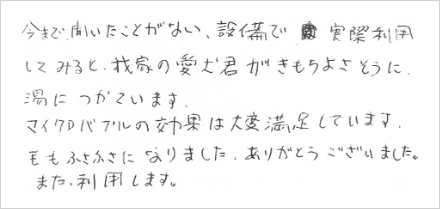 今まで、聞いたことがない、設備で 実際利用
してみると、我家の愛犬君がきもちよさそうに、
湯につかています。
マイクロバブルの効果は大変満足しています。
毛もふさふさになりました、ありがとうございました。
また、利用します。